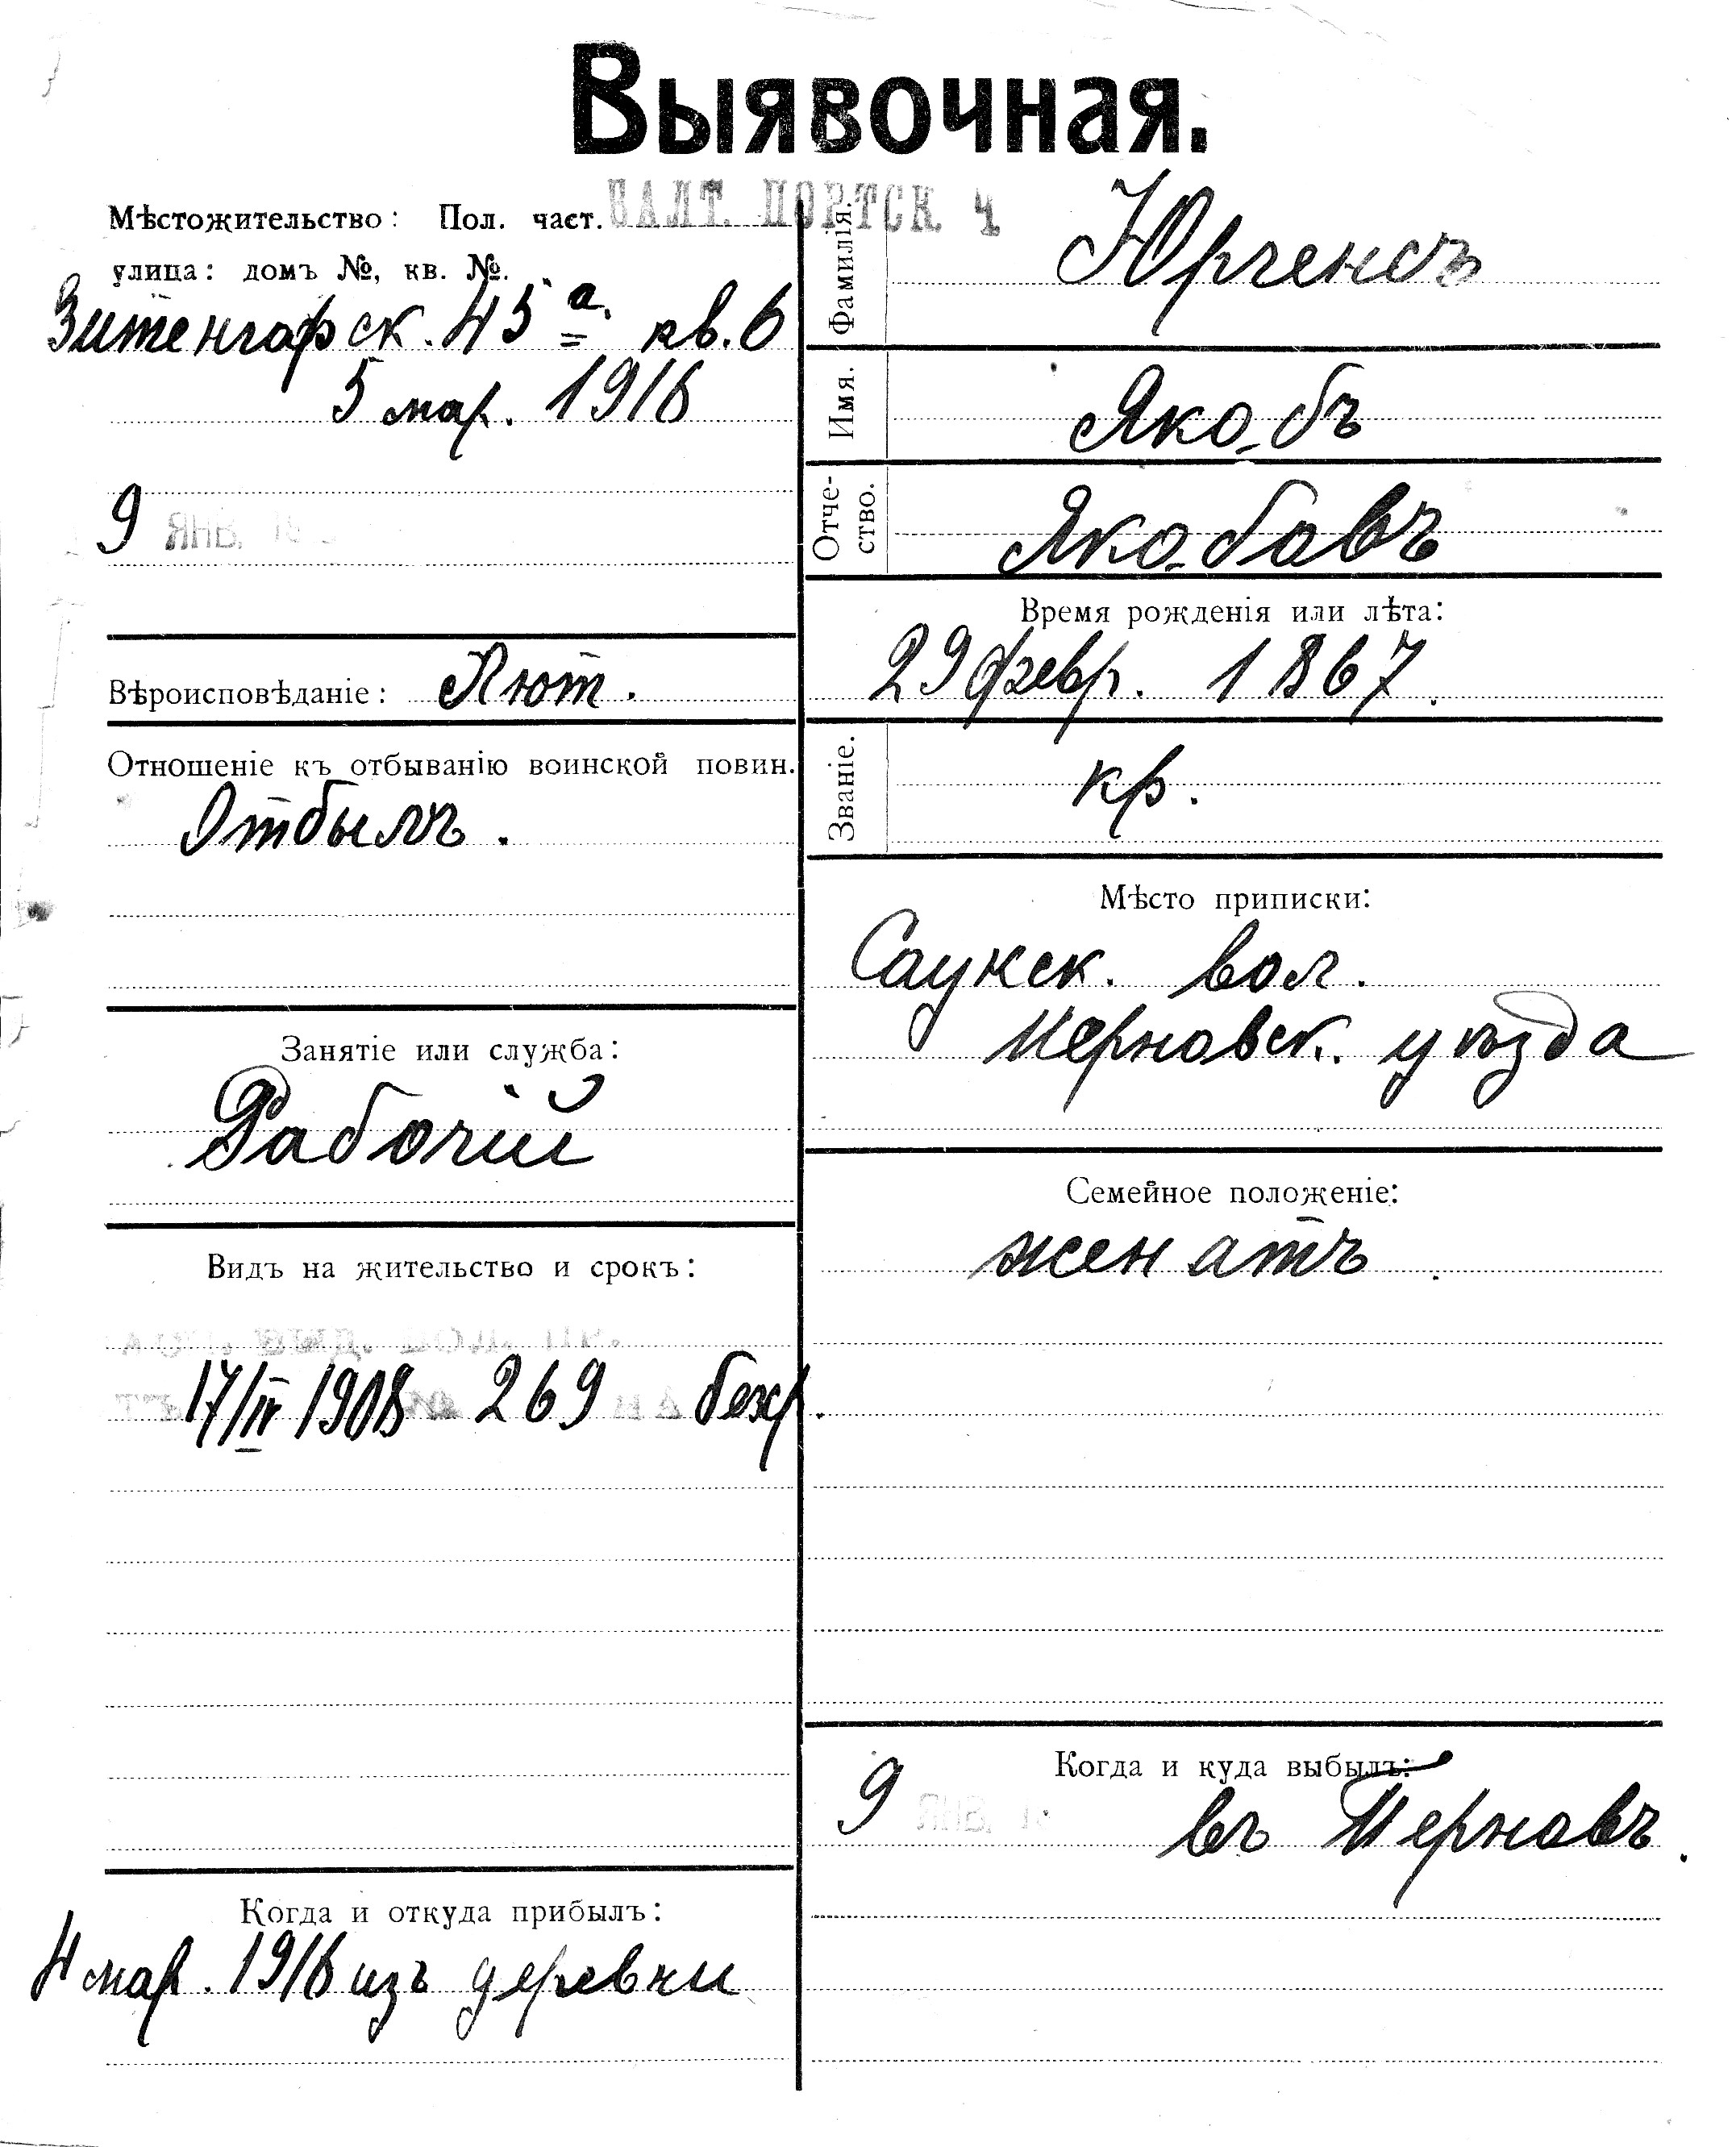 Выявочная.
Мѣстожительство: Пол. част. БАЛТ. ПОРТСК. Ч
улица: домъ №, кв. №.
Зитенгофск. 45а. кв. 6
5 мар. 1916
9 ЯНВ.
Вѣроисповѣданіе: Лют.
Отношеніе къ отбыванію воинской повин.
Отбылъ.
Занятіе или служба:
Рабочій
Видъ на жительство и срокъ:
17/IV 1908 269 безср.
Когда и откуда прибылъ:
4 мар. 1916 изъ деревни
Фамилія. Юргенсъ
Имя. Якобъ
Отче-
ство. Якобовъ
Время рожденія или лѣта:
29 февр. 1867.
Званіе. кр.
Мѣсто приписки:
Саукск. вол.
Перновск. уѣзда
Семейное положеніе:
женатъ.
Когда и куда выбылъ:
9 ЯНВ. въ Перновъ.